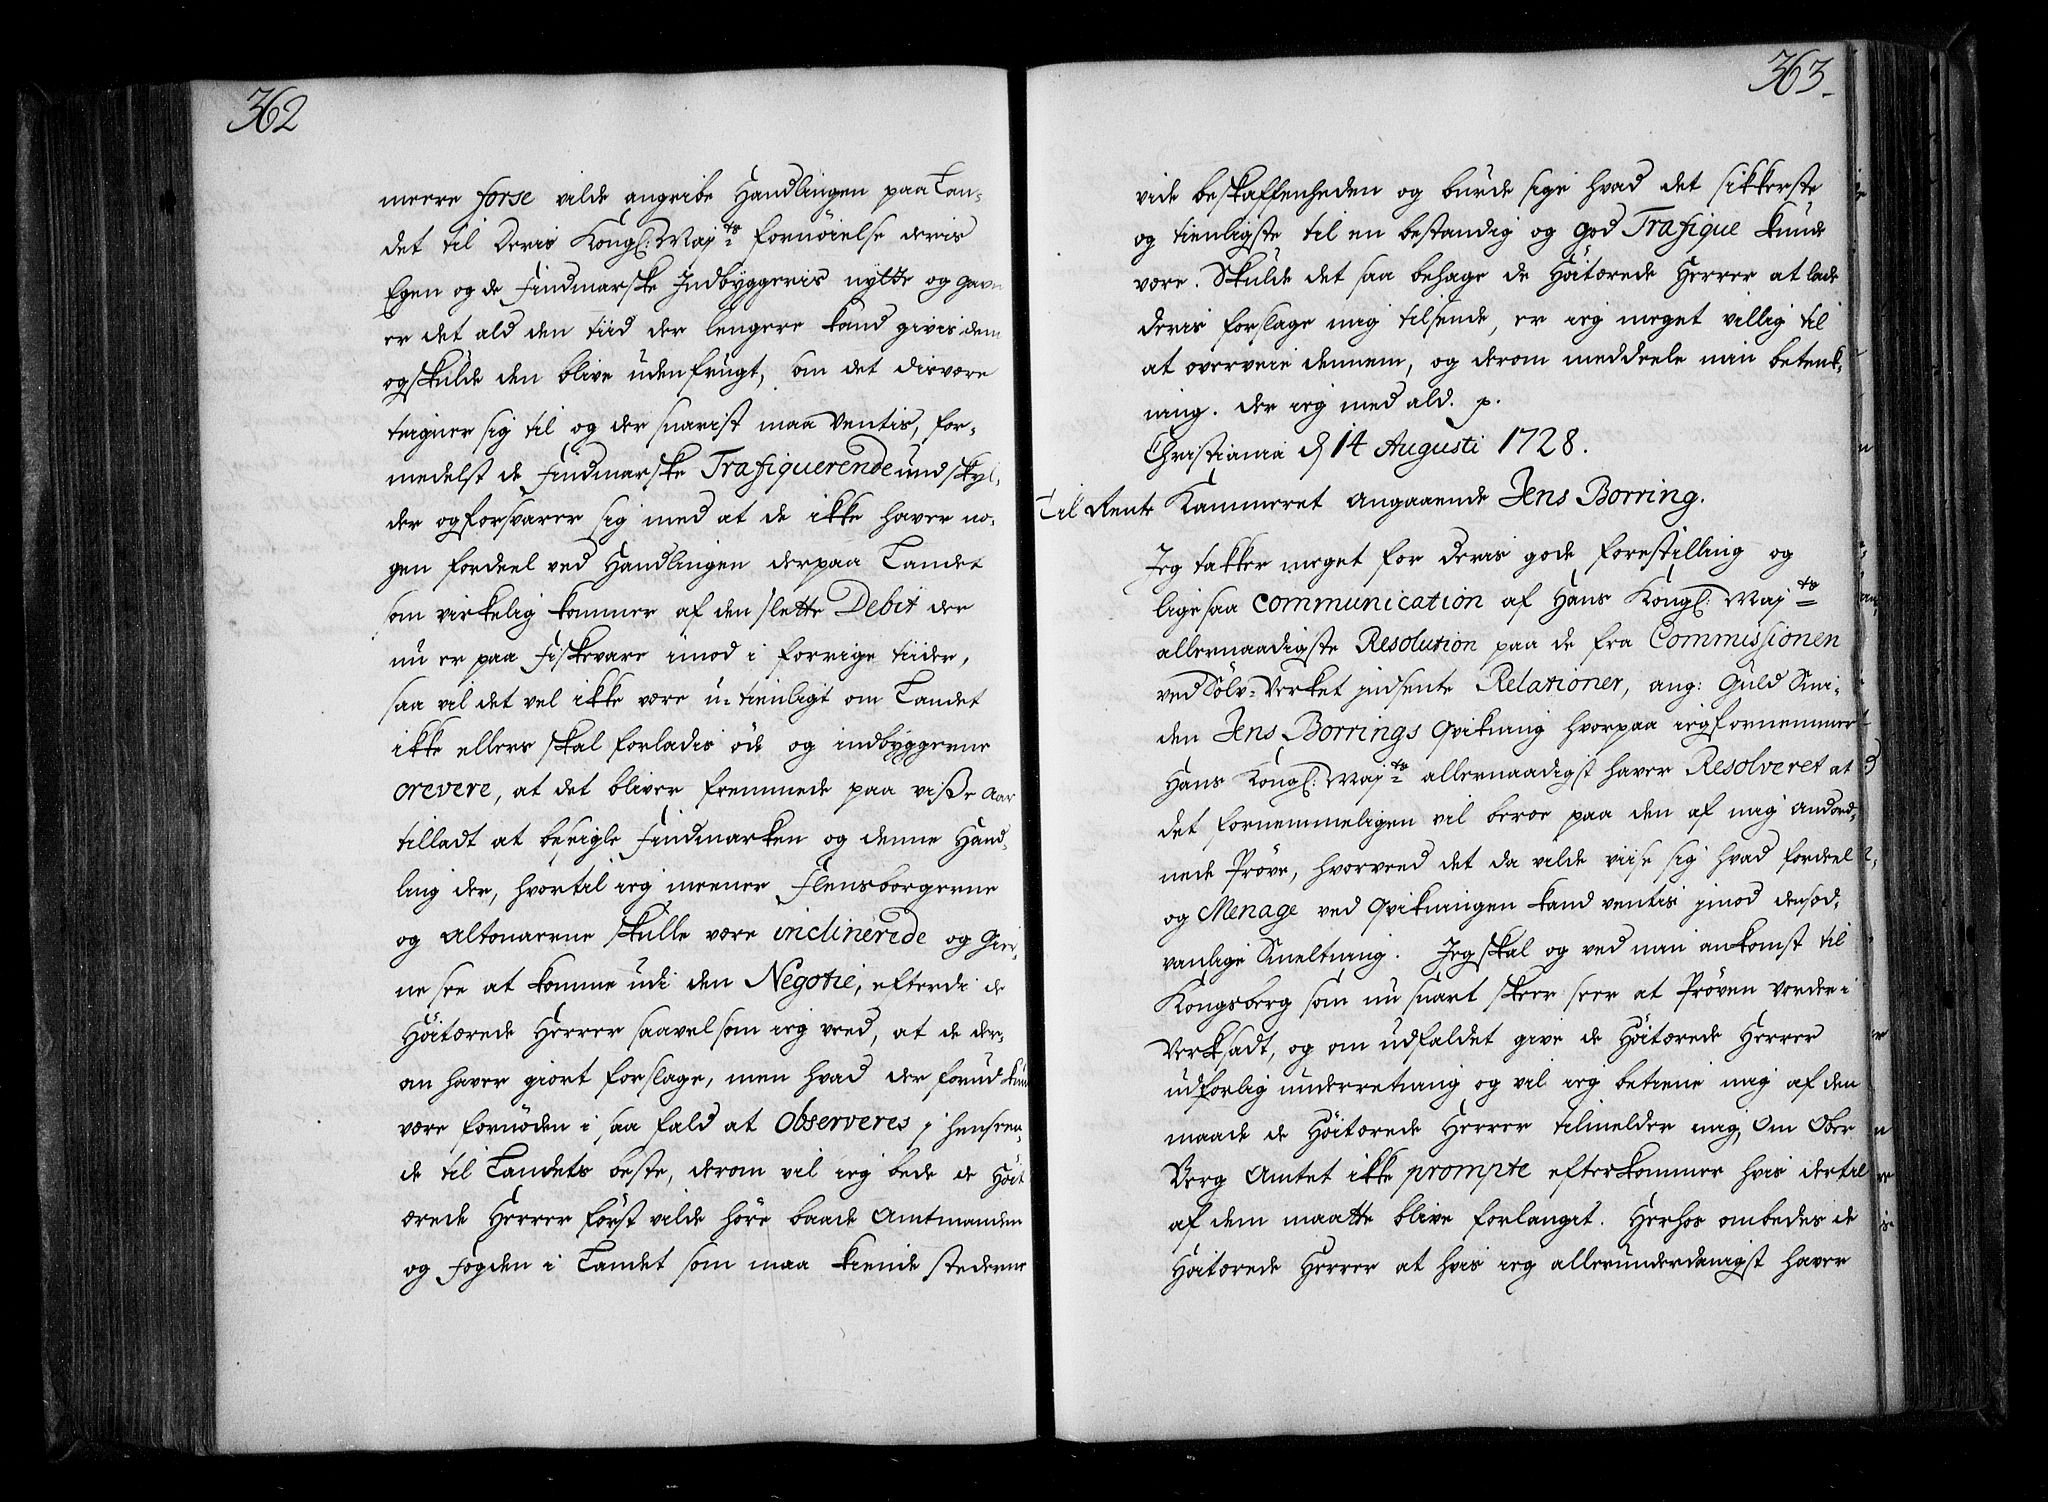 362
meere force vilde angribe Handlingen paa Lan-
det til Deris Kongl: Maj:ts fornöielse deris
Egen og de Findmarske Indbyggeris nytte og gavn
er det ald den tiid der lengere kand givis dem
og skulde den blive uden frugt, som det disvære
teigner sig til og der snarist maa ventis, for-
medelst de Findmarske Trafiquerende undskyl-
der og forsvarer sig med at de ikke haver no-
gen fordeel ved Handlingen derpaa Landet
som virkelig kommer af den slette Debit der
nu er paa Fiskevare imod i forrige tiider,
saa vil det vel ikke være u-tienligt om Landet
ikke ellers skal forladis öde og indbyggerne
crevere, at det bliver fremmede paa visse Aar
tilladt at beseigle Findmarken og denne Hand-
ling der, hvortil ieg meener Flensborgerne
og Altonaerne skulle være inclinerede og gier-
ne see at komme udi den Negotie, efterdi de
Höitærede Herrer saavelsom ieg veed, at de der-
om haver giort forslage, men hvad der forud kun
være fornöden i saa fald at observeres i henseen-
de til Landets beste, derom vil ieg bede de Höit
ærede Herrer först vilde höre baade Amtmanden
og Fogden i Landet som maa kiende stederne
363.
vide beskaffenheden og burde sige hvad det sikkerste
og tienligste til en bestandig og god Trafique kunde
være. Skulde det saa behage de Höitærede Herrer at lade
deris forslage mig tilsende, er ieg meget villig til
at overveie dennem, og derom meddeele min betenk-
ning. der ieg med ald. p.
Christiania d 14 Augusti 1728.
Til Rente Kammeret angaaende Jens Borring.
Jeg takker meget for deris gode forestilling og
ligesaa communication af Hans Kongl: Maj:ts
allernaadigste Resolution paa de fra Commissionen
ved Sölv-Verket indsente Relationer, ang: Guld Smi-
den Jens Borrings Qvikning hvorpaa ieg fornemmer
Hans Kongl: Maj:ts allernaadigst haver Resolveret at
det fornemmeligen vil beroe paa den af mig anord-
nede Pröve, hvorved det da vilde viise sig hvad fordeel
og Menage ved Qvikningen kand ventis imod den sæd-
vanlige Smeltning. Jeg skal og ved min ankomst til
Kongsberg som nu snart skeer seer at Pröven vorder i
verksadt, og om udfaldet give de Höitærede Herrer
udförlig underretning og vil ieg betiene mig af den
maade de Höitærede Herrer tilmelder mig, Om Ober
Berg Amtet ikke prompte efterkommer hvis dertil
af dem maatte blive forlanget. Herhos ombedes de
Höitærede Herrer at hvis ieg allerunderdanigst haver